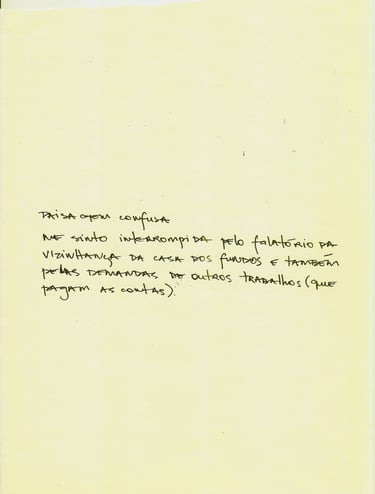 Paisagem confusa
me sinto interrompida pelo falatório da
vizinhança da casa dos fundos e também
pelas demandas de outros trabalhos (que
pagam as contas).